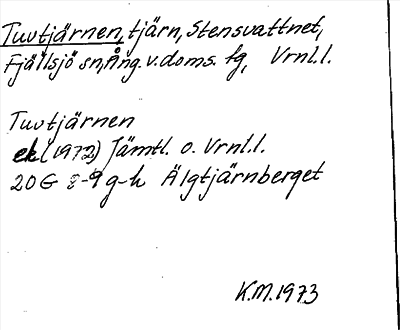 Tuvtjärnen, tjärn, Stensvattnet,
Fjällsjö sn, Ång. v. doms. fg, Vrnl.l.
Tuvtjärnen
ek (1972) Jämtl. o. Vrnl.l.
20G 8-9 g-h Älgtjärnberget
K.M. 1973